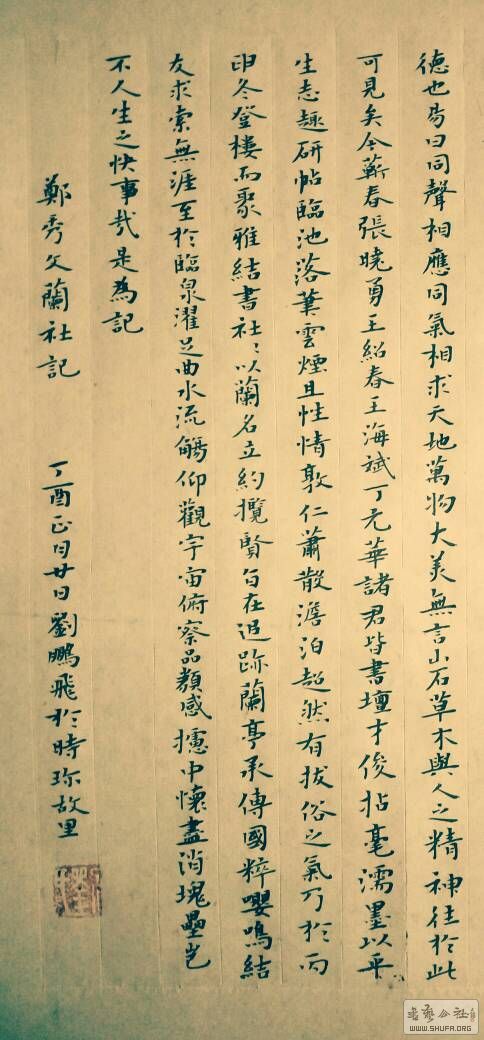 德也易曰同聲相應同氣相求天地萬物大美無言山石草木與人之精神往於此
可見矣今蘄春張曉勇王紹春王海斌丁元華諸君皆書壇才俊拈毫濡墨以平
生志趣研帖臨池落葉雲煙且性情敦仁蕭散澹泊超然有拔俗之氣乃於丙
申冬登樓而聚雅結書社〻以蘭名立約攬賢旨在追跡蘭亭承傳國粹嚶鳴結
友求索無涯至於臨泉濯足曲水流觴仰觀宇宙俯察品類感攄中懷盡消塊壘豈
不人生之快事哉是為記
鄭秀文蘭社記 丁酉正月廿日劉鵬飛於時珍故里
WWW.SHUFA.ORG